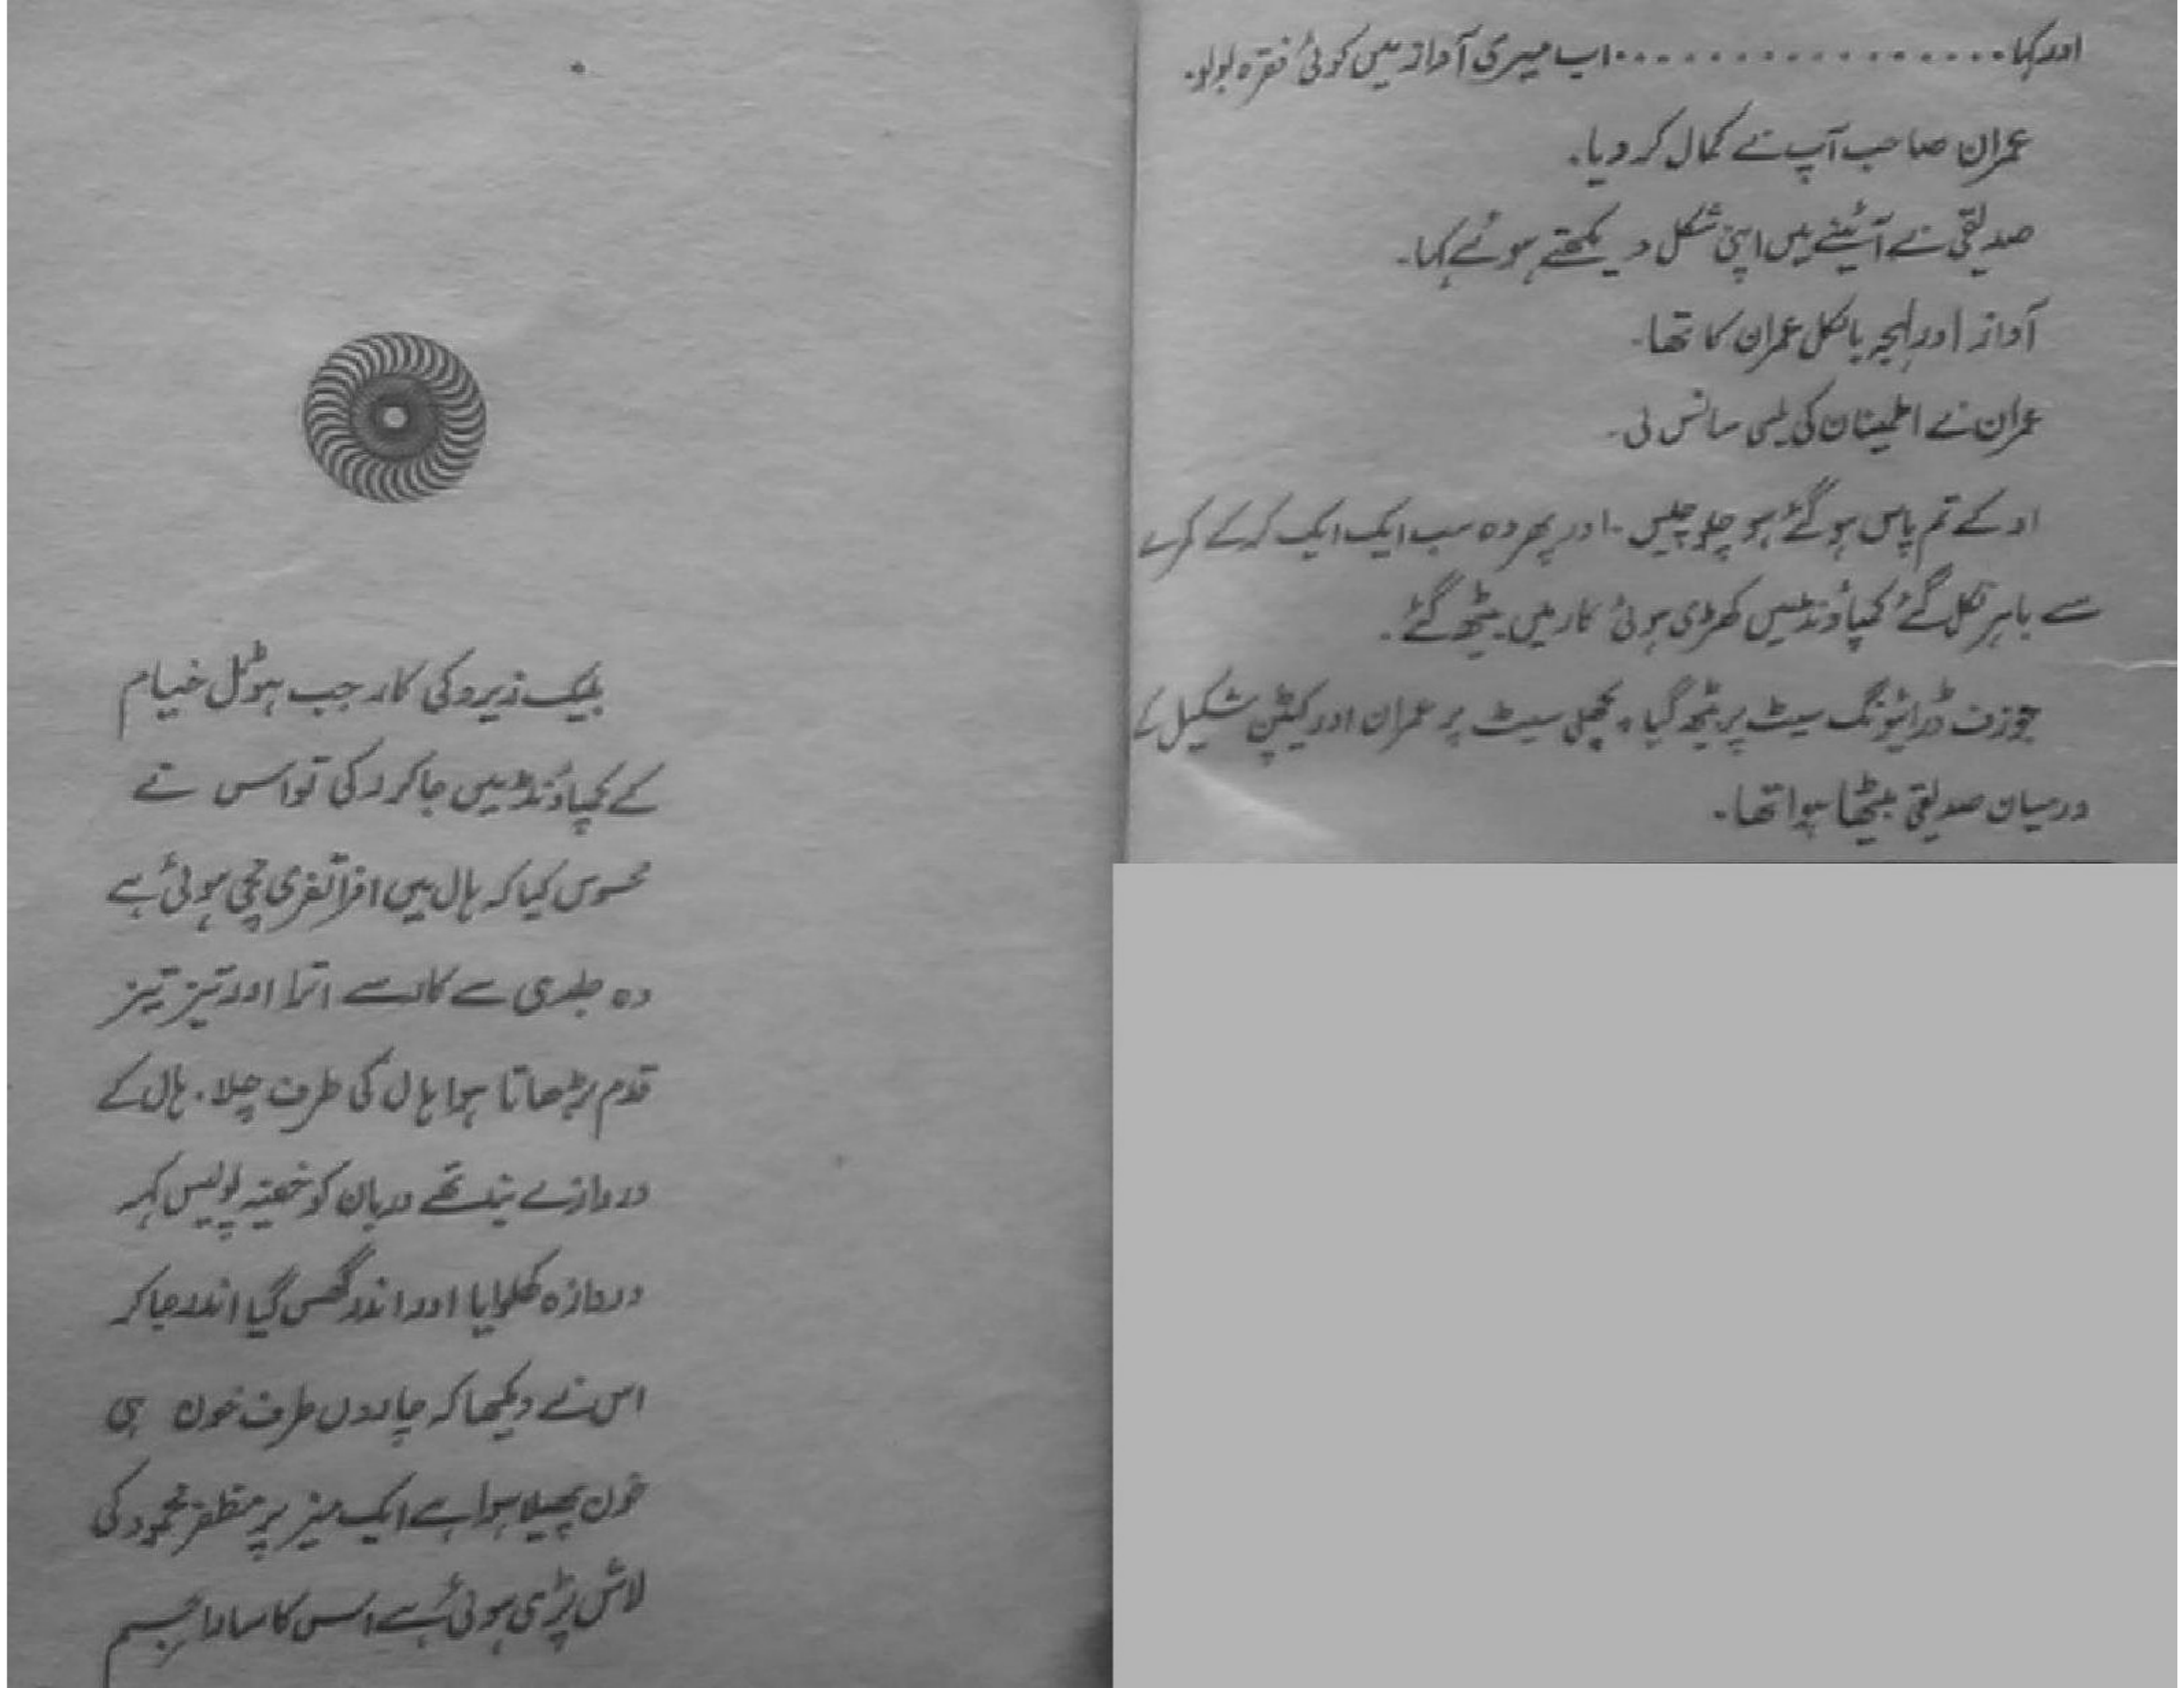 اور کہا ................ اب میری آواز میں کوئی فقرہ بولو۔
عمران صاحب آپ نے کمال کر دیا۔
صدیقی نے آئینے میں اپنی شکل دیکھتے ہوئے کہا۔
آواز اور لہجہ بالکل عمران کا تھا۔
عمران نے اطمینان کی لمبی سانس لی۔
او کے تم پاس ہو گئے ہو چلو چلیں ۔ اور پھر وہ سب ایک ایک کر کے کمرے
سے باہر نکل گئے کمپاؤنڈ میں کھڑی ہوئی کار میں بیٹھ گئے۔
جوزف ڈرائیونگ سیٹ پر بیٹھ گیا ۔ پچھلی سیٹ پر عمران اور کیپٹن شکیل کے
درمیان صدیقی بیٹھا ہوا تھا۔
بلیک زیرو کی کار جب ہوٹل خیام
کے کمپاؤنڈ میں جا کر رکی تو اس نے
محسوس کیا کہ ہال میں افراتفری مچی ہوئی ہے
وہ جلدی سے کار سے اترا اور تیز تیز
قدم بڑھاتا ہوا ہال کی طرف چلا۔ ہال کے
دروازے بند تھے دربان کو خفیہ پولیس کہہ
دروازہ کھلوایا اور اندر گھس گیا اندر جا کر
اس نے دیکھا کہ چاروں طرف خون ہی
خون پھیلا ہوا ہے ایک میز پر مظفر محمود کی
لاش پڑی ہوئی ہے اس کا سارا جسم